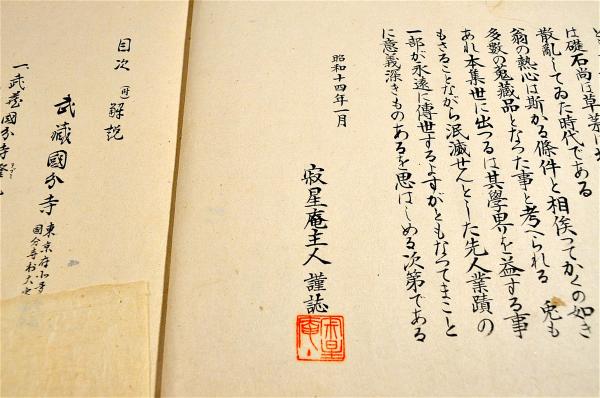 は礎石尚は草莽に
散亂してゐた時代である
翁の熱心は斯かる條件と相俟つてかくの如き
多數の蒐藏品となつた事と考へられる 兎も
あれ本集世に出つるは其學界を益する事
もさることながら泯滅せんとした先人業蹟の
一部が永遠に傳世するよすがともなつてまこと
に意義深きものあるを思はしめる次第である
昭和十四年一月
寂星庵主人 謹誌
目次 解説
武藏國分寺
東京府北多
國分寺村大
一、武藏國分寺